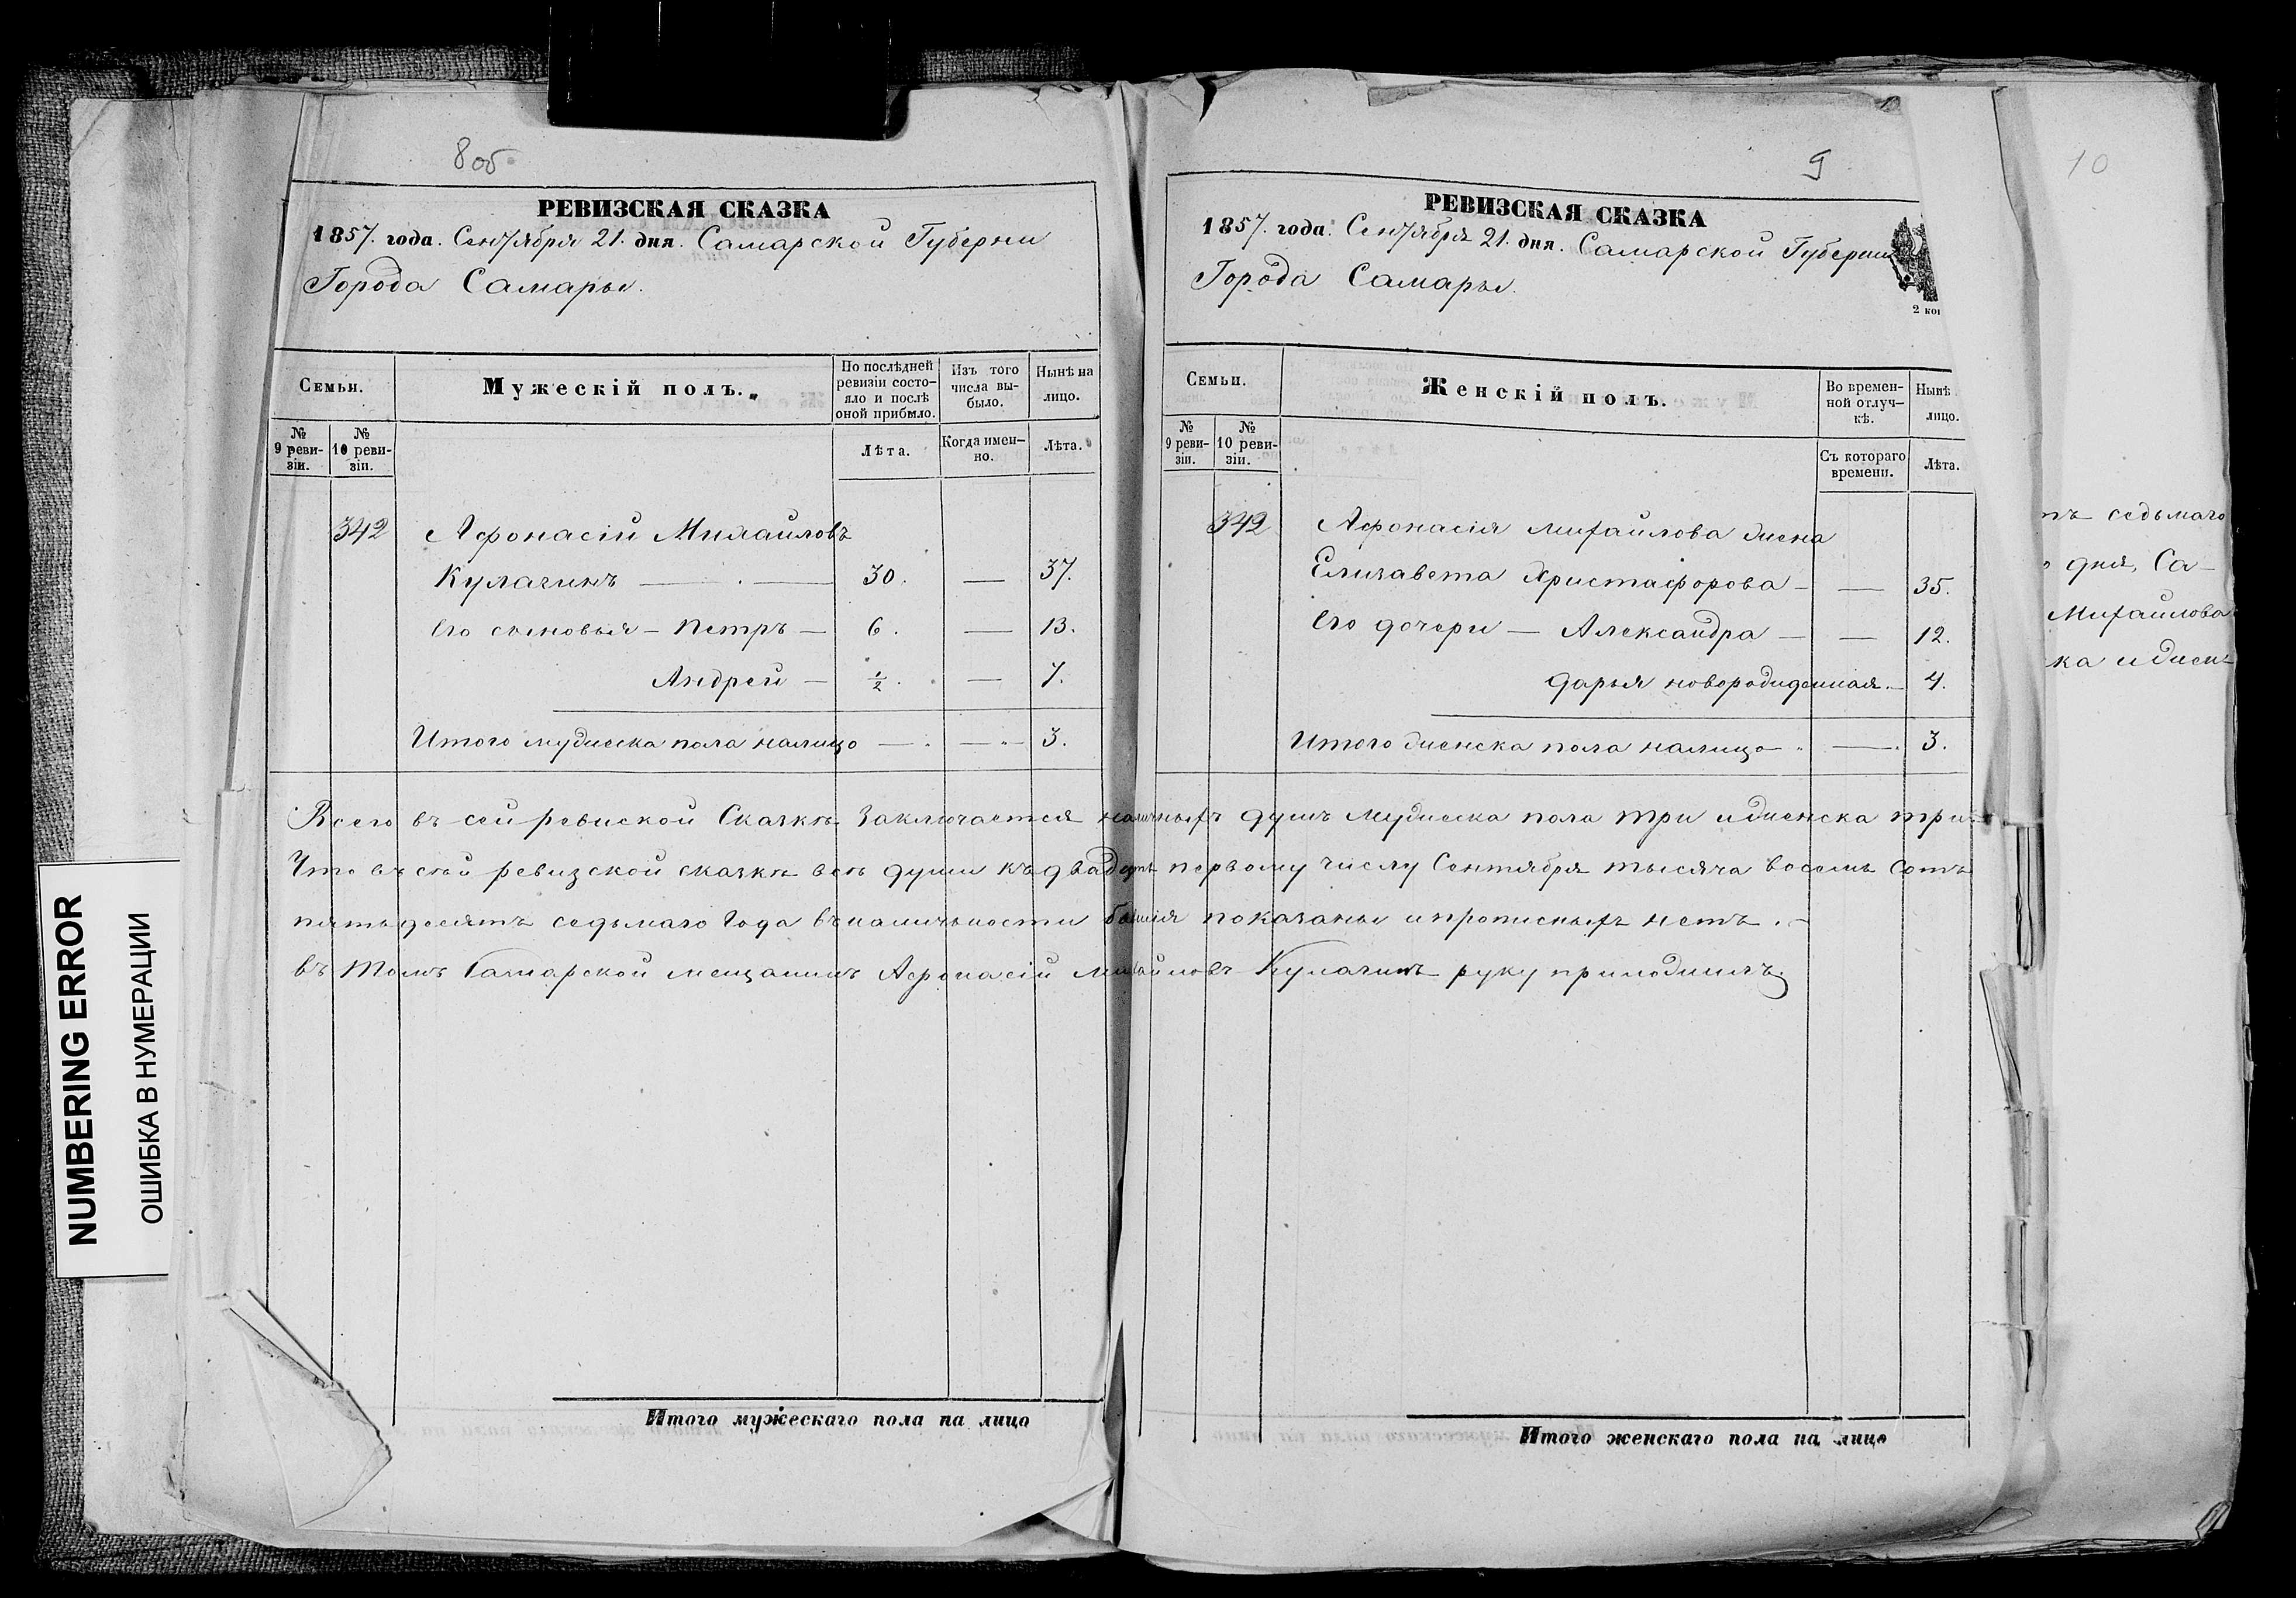 8 об
РЕВИЗСКАЯ СКАЗКА
1857. года. Сентября 21. дня. Самарской Губерни
Города Самары.
Семьи.
Мужескій полъ.
По послѣдней ревизіи состо-яло и послѣ оной прибыло.
Изъ того числа вы-было.
Нынѣ на лицо.
№ 9 реви-зіи.
№ 10 реви-зіи.
Лѣта.
Когда имен-но.
Лѣта.
342 Афонасій Михайловъ
Кулагинъ — 30. — 37.
Его сыновья — Петръ — 6. — 13.
Андрей — ½. — 7.
Итого мужеска пола налицо — — 3.
Итого мужескаго пола на лицо
9
РЕВИЗСКАЯ СКАЗКА
1857. года. Сентября 21. дня. Самарской Губернии
Города Самары.
2 коп
Семьи.
Женскій полъ.
Во времен-ной отлуч-кѣ.
Нынѣ лицо.
№ 9 реви-зіи.
№ 10 реви-зіи.
Съ котораго времени.
Лѣта.
342 Афонасія Михайлова жена
Елизавета Христафорова — — 35.
Его дочери — Александра — — 12.
Дарья новорожденная. — 4.
Итого женска пола налицо — — 3.
Всего въ сей ревиской Сказкѣ Заключается наличныхъ душъ мужеска пола три и женска три
Что въ сей ревизской сказкѣ всѣ души къ двадцать первому числу Сентября тысяча восемь сотъ
пятьдесятъ седьмаго Года въ наличьности показаны и прописныхъ нетъ.
въ Томъ Самарской мещанинъ Афонасій Михайловъ Кулагинъ руку приложилъ.
Итого женскаго пола на лицо
10
седьмаго
дня, Са-
Михайлова
ка и жен-
NUMBERING ERROR
ОШИБКА В НУМЕРАЦИИ